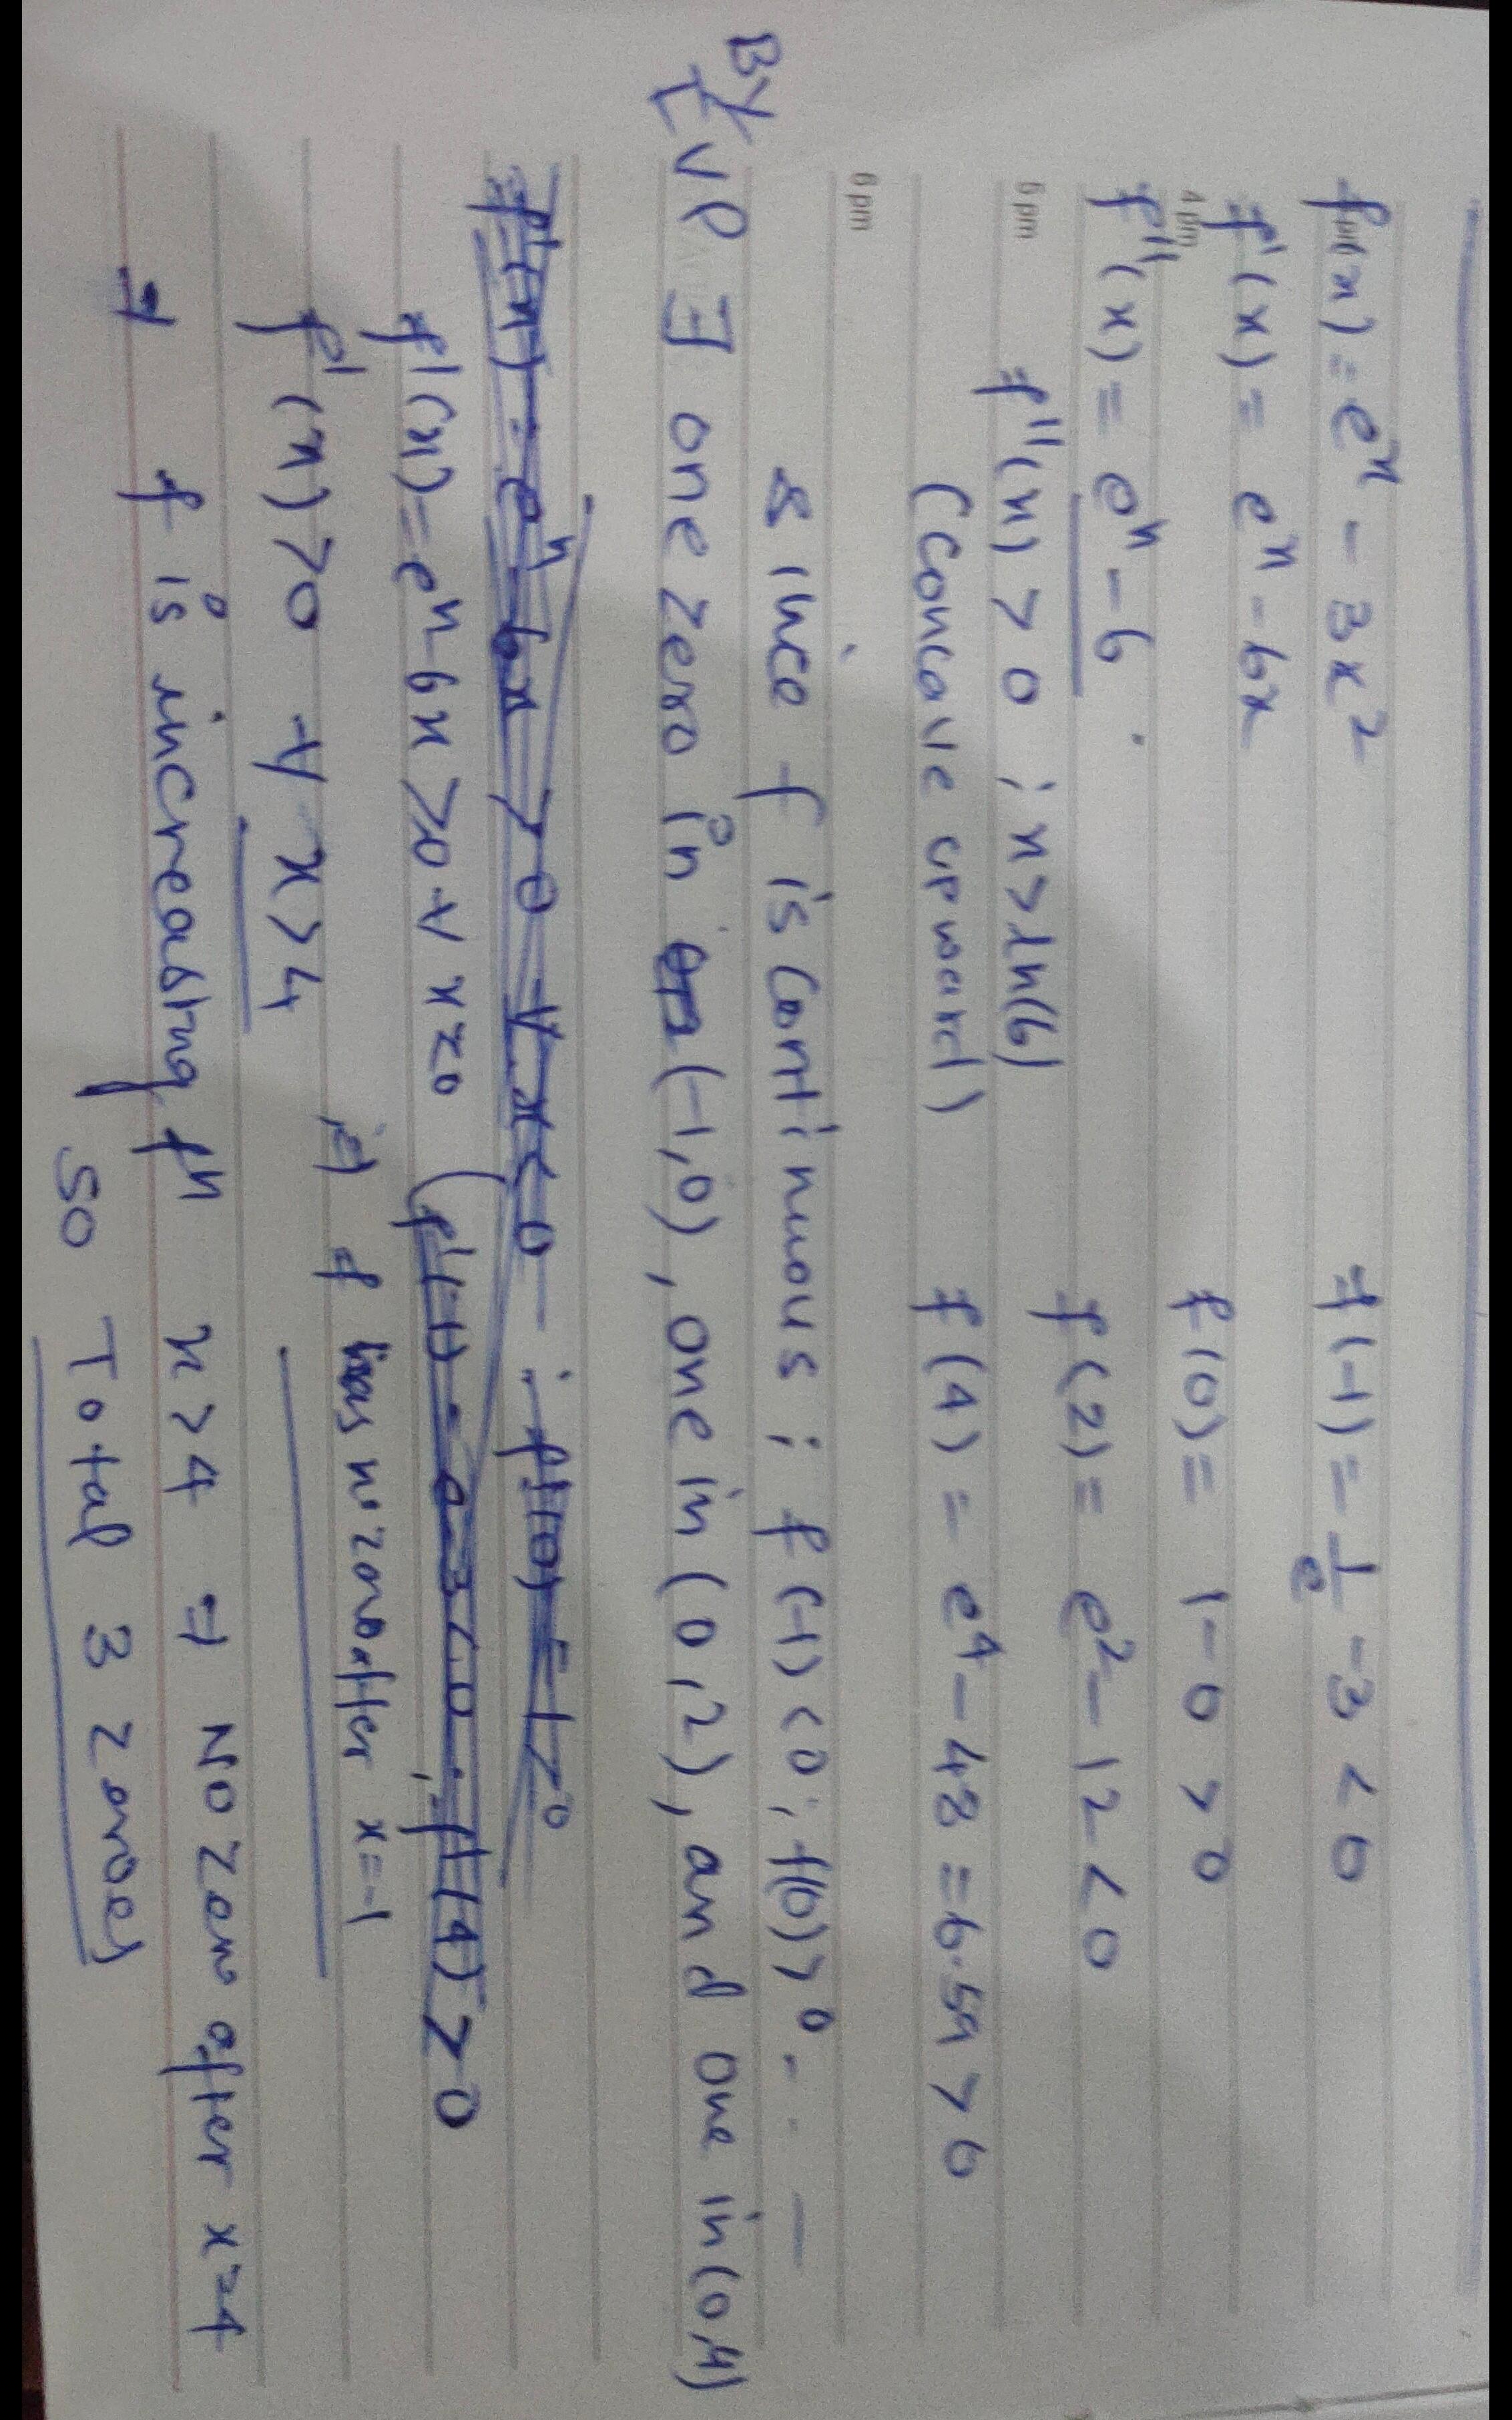 f(x) = e^x - 3x^2
f(-1) = 1/e - 3 < 0
4 pm
f'(x) = e^x - 6x
f(0) = 1 - 0 > 0
f''(x) = e^x - 6
f(2) = e^2 - 12 < 0
5 pm
f''(x) > 0 ; x > ln(6)
(Concave upward)
f(4) = e^4 - 48 = 6.59 > 0
6 pm
since f is continuous ; f(-1) < 0 ; f(0) > 0 - - -
By
IVP ∃ one zero in (-1,0), one in (0,2), and one in (0,4)
f'(x) = e^x - 6x > 0 ∀ x < 0 ; f'(0) = 1 > 0
f'(x) = e^x - 6x > 0 ∀ x ≤ 0 (f'(1) = e - 3 < 0 ; f'(4) > 0
⇒ f has no zero after x = -1
f'(x) > 0 ∀ x > 4
⇒ f is increasing f^n x > 4 ⇒ No zero after x = 4
So Total 3 zeroes